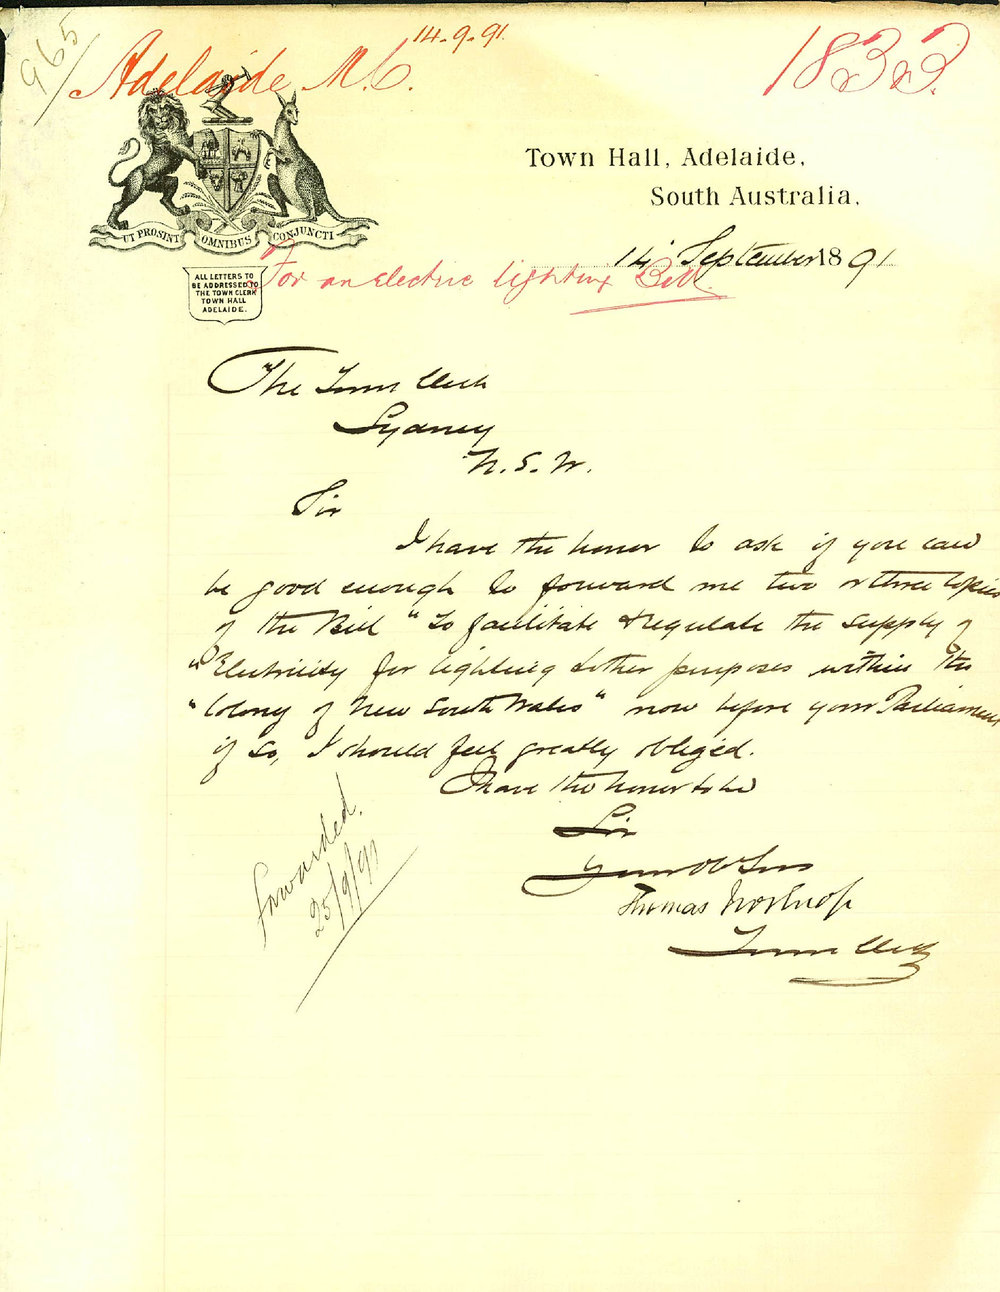 965
Adelaide M.C. 14.9.91
1832.
UT PROSINT OMNIBUS CONJUNCTI
ALL LETTERS TO
BE ADDRESSED TO
THE TOWN CLERK
TOWN HALL
ADELAIDE.
Town Hall, Adelaide,
South Australia,
14 September 1891
For an electric lighting Bill.
The Town Clerk
Sydney
N.S.W.
Sir
I have the honor to ask if you can
be good enough to forward me two or three copies
of the Bill "To facilitate & regulate the supply of
"Electricity for lighting & other purposes within the
"Colony of New South Wales" now before your Parliament
if so, I should feel greatly obliged.
I have the honor to be
Sir
Your Ob Serv
Thomas Worsnop
Town Clerk
Forwarded.
25/9/91